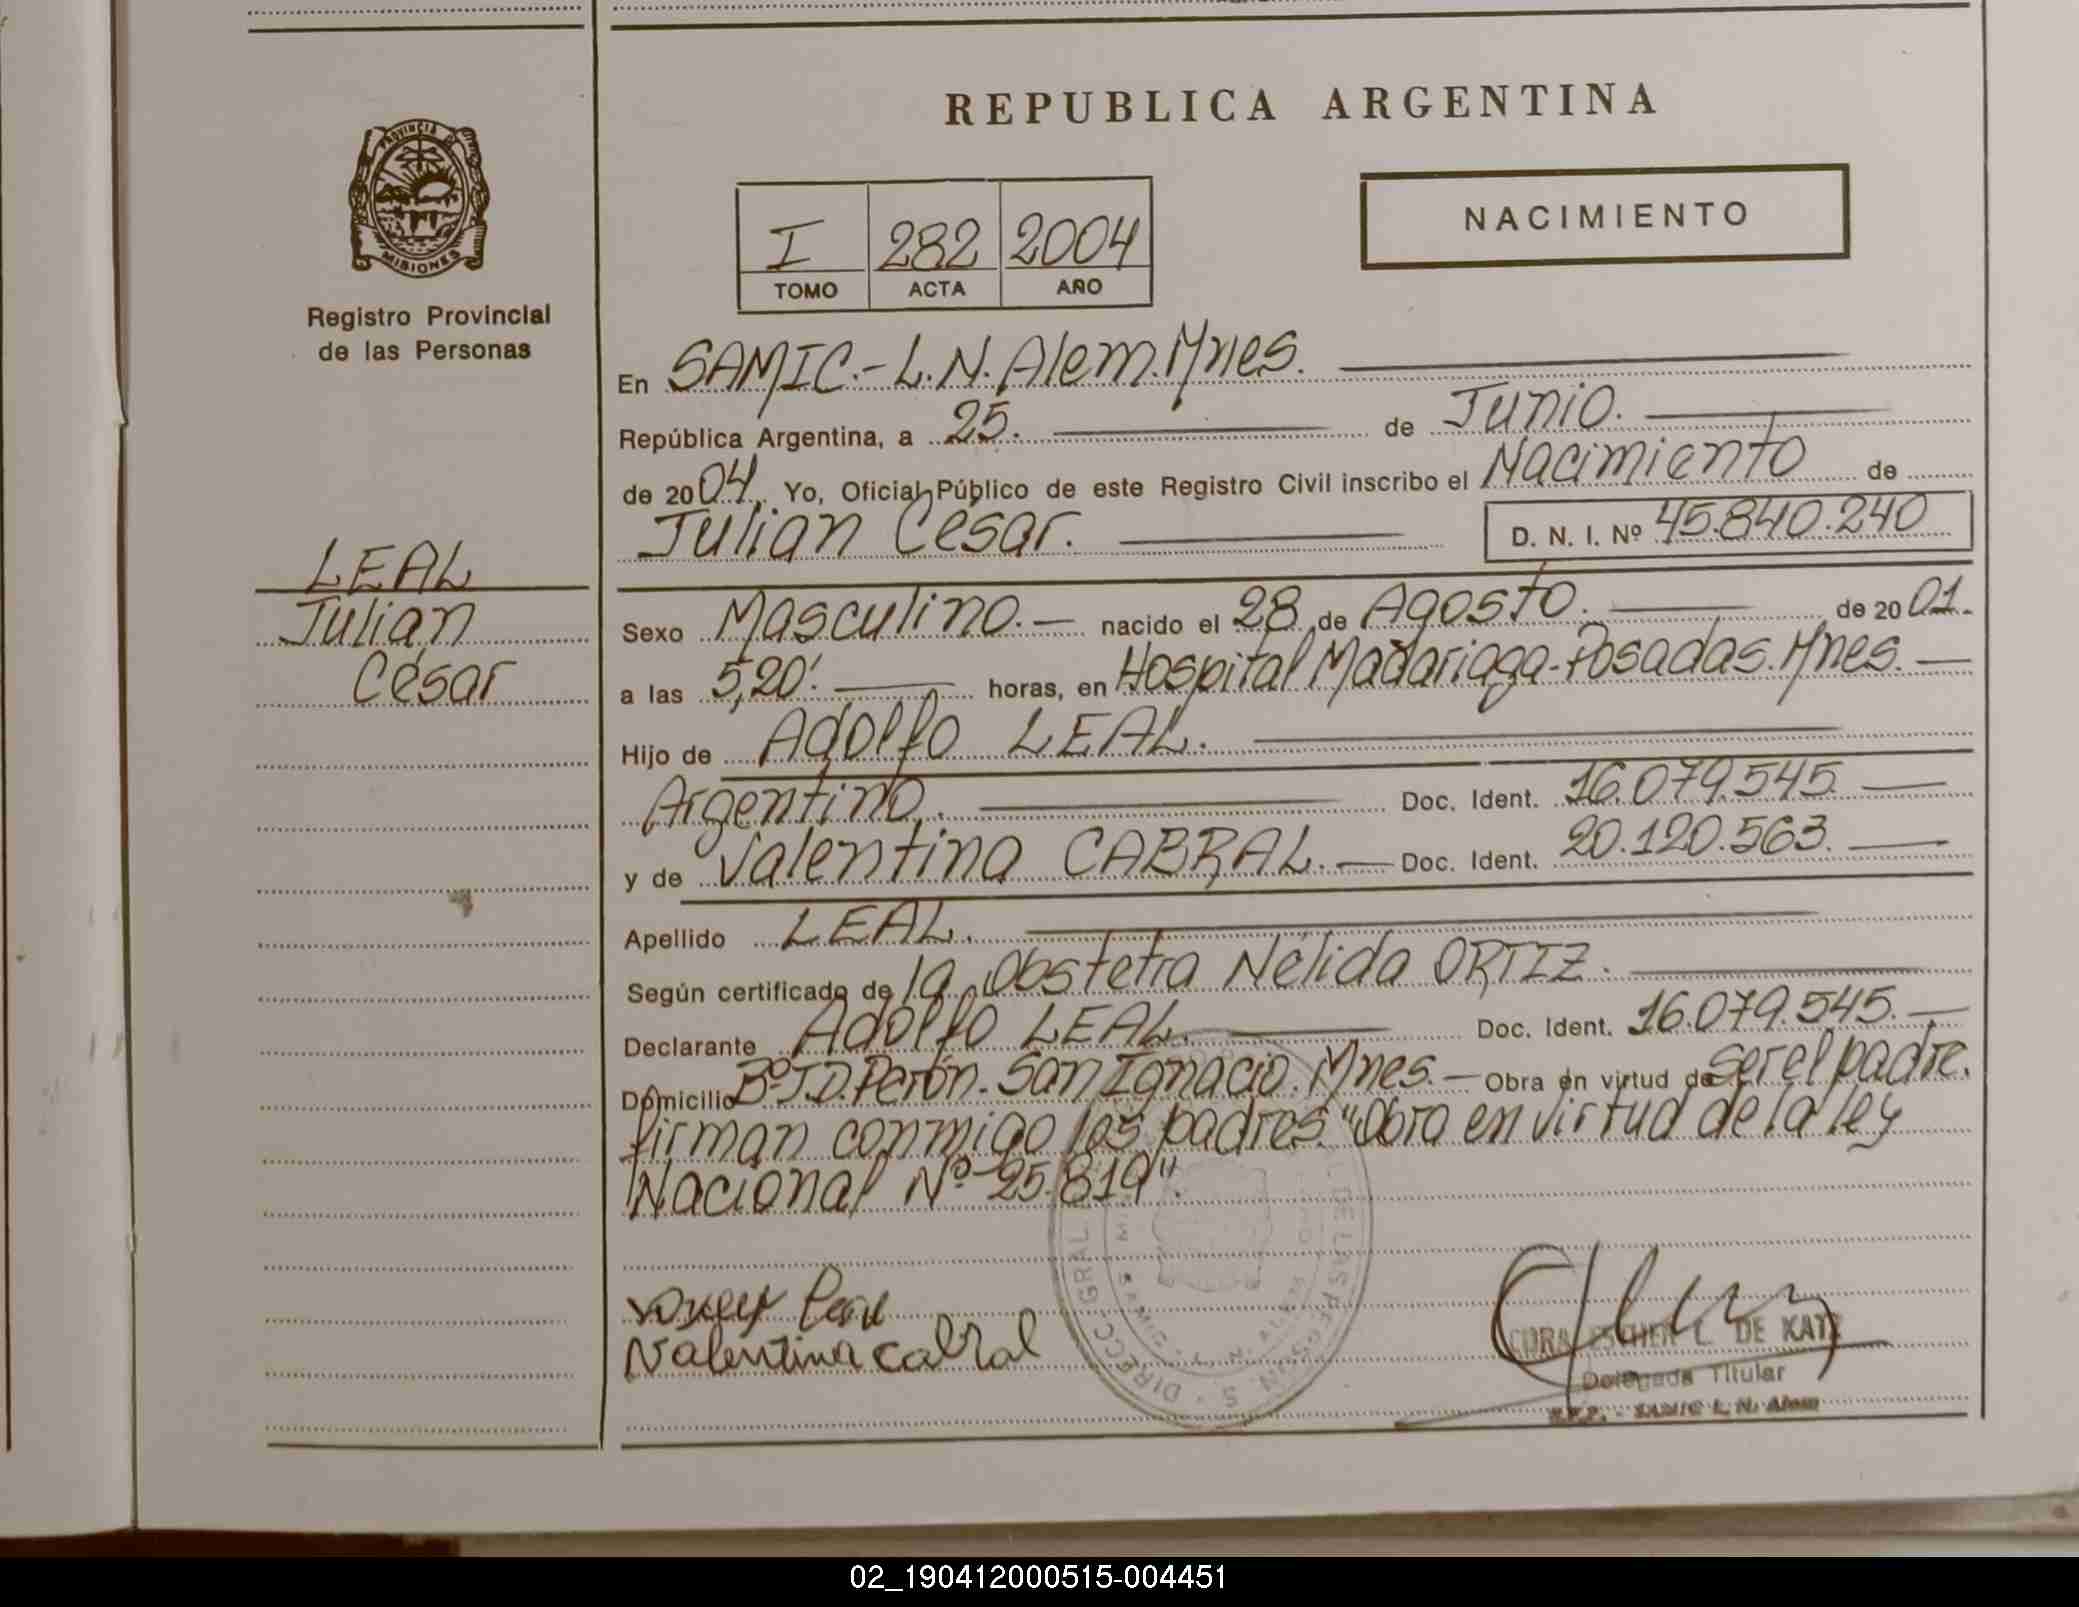 REPUBLICA ARGENTINA
PROVINCIA DE
MISIONES
Registro Provincial
de las Personas
I 282 2004
TOMO ACTA AÑO
NACIMIENTO
En SAMIC.- L.N. Alem. Mnes.
República Argentina, a 25. de Junio.
de 2004. Yo, Oficial Público de este Registro Civil inscribo el Nacimiento de
Julian César. D. N. I. Nº 45.840.240
LEAL
Julian
César
Sexo Masculino.- nacido el 28 de Agosto. de 2001.
a las 5,20'. horas, en Hospital Madariaga-Posadas. Mnes.
Hijo de Adolfo LEAL.
Argentino. Doc. Ident. 16.079.545.
y de Valentina CABRAL. Doc. Ident. 20.120.563.
Apellido LEAL.
Según certificado de la Obstetra Nélida ORTIZ.
Declarante Adolfo LEAL. Doc. Ident. 16.079.545.
Domicilio Bº J.D. Perón- San Ignacio. Mnes.- Obra en virtud de ser el padre.
firman conmigo los padres. "Obra en virtud de la ley
Nacional Nº 25.819".
Valentina Cabral
DE KATZ
Delegada Titular
R.P.P. - SAMIC L. N. Alem
02_190412000515-004451